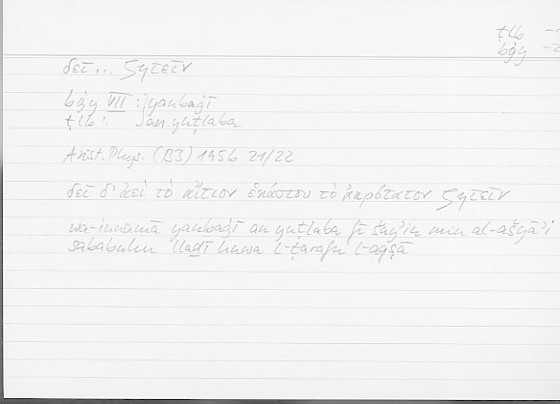 ṭlb
bġy
δεῖ... ζητεῖν
bġy VII : yanbaġī
ṭlb : an yuṭlaba
Arist. Phys. (B3) 195b 21/22
δεῖ δ' ἀεὶ τὸ αἴτιον ἑκάστου τὸ ἀκρότατον ζητεῖν
wa-innamā yanbaġī an yuṭlaba fī šayʾin min al-ašyāʾi
sababuhu llaḏī huwa l-ṭarafu l-aqṣā